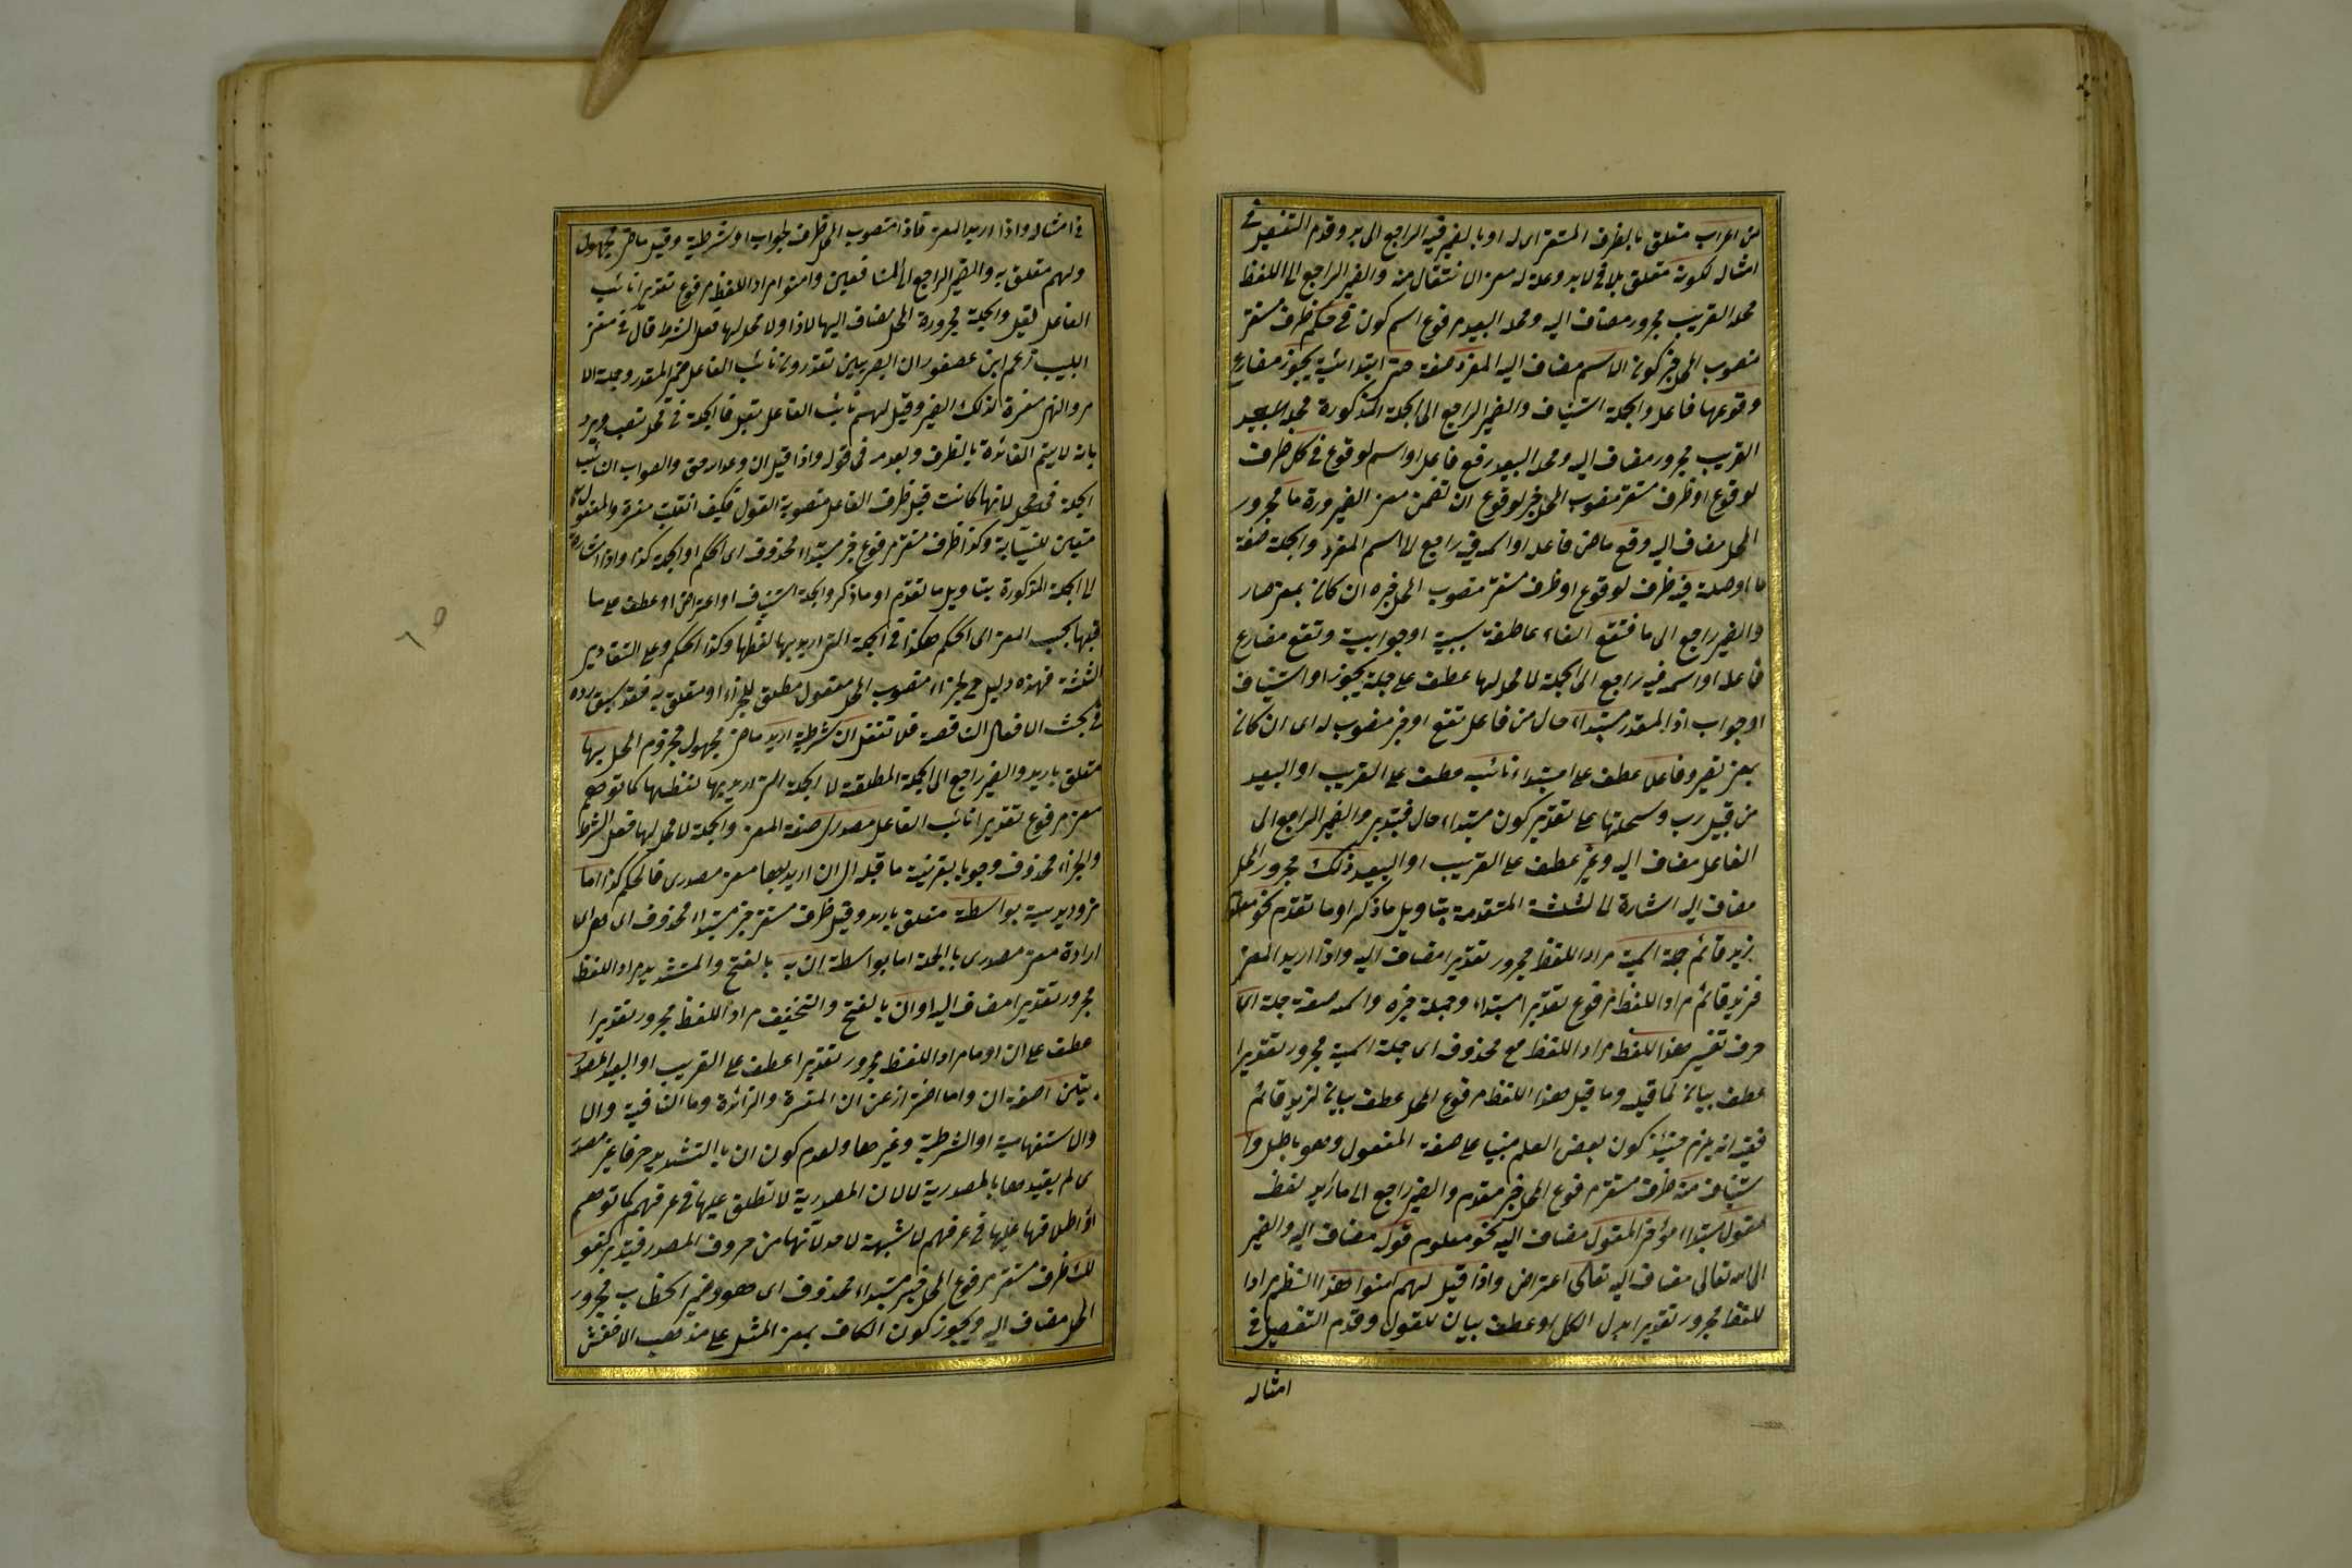 من اعراب متعلق بالظرف المستقر اى له او بالضمير فيه الراجع الى بد وقدم التفصيل فى
امثاله لكونه متعلق بلا فى لا بد وعلة له معنى الانتقال منه والضمير الراجع الى اللفظ
محله القريب مجرور مضاف اليه ومحله البعيد مرفوع اسم كون فى حكم ظرف مستقر
منصوب المحل خبر كون الاسم مضاف اليه المفرد صفة حتى ابتدائية يجوز مضارع
وقوعها فاعل والجملة استيناف والضمير الراجع الى الجملة المذكورة محله
القريب مجرور مضاف اليه ومحله البعيد رفع فاعل او اسم لوقوع فى كل ظرف
لوقوع او ظرف مستقر منصوب المحل خبر لوقوع ان تضمن معنى الصيرورة ما مجرور
المحل مضاف اليه وقع ماض فاعله او اسمه فيه راجع الاسم المفرد والجملة صفة
ما او صلة فيه ظرف لوقوع او ظرف مستقر منصوب المحل خبره ان كان بمعنى صار
والضمير راجع الى ما فتقع الفاء عاطفة سببية او جوابية وتقع مضارع
فاعله او اسمه فيه راجع الى الجملة لا محل لها عطف على جملة يجوز او استيناف
او جواب اذا المقدر مبتداء حال من فاعل تقع او خبر منصوب له اى ان كان
بمعنى تصير وفاعل عطف على مبتداء نائبه عطف على القريب او البعيد
من قبيل رب وسخلتها على تقدير كون مبتداء حال فتدبر والضمير الراجع الى
الفاعل مضاف اليه وغير عطف على القريب او البعيد ذلك مجرور المحل
مضاف اليه اشارة الى الثلثة المتقدمة بتاويل ما ذكر او ما تقدم نحو معلوم
زيد قائم جملة اسمية مراد اللفظ مجرور تقديرا مضاف اليه واذا اريد المعنى
فزيد قائم مراد اللفظ مرفوع تقديرا مبتداء وجملة خبره واسمية صفة جملة اى
حرف تفسير هذا اللفظ مراد اللفظ مع محذوف اى جملة اسمية مجرور تقديرا
عطف بيان لما قبله وما قيل هذا اللفظ مرفوع المحل عطف بيان لزيد قائم
ففيه انه يلزم حينئذ كون بعض العلم مبنيا على صفة المفعول وهو باطل وا
ستيناف منه ظرف مستقر مرفوع المحل خبر مقدم والضمير راجع الى ما اريد لفظه
مقول مبتداء مؤخر المقول مضاف اليه نحو معلوم قوله مضاف اليه والضمير
الى الله تعالى مضاف اليه تعالى اعتراض واذا قيل لهم امنوا هذا النظم مراد ا
للفظ مجرور تقديرا بدل الكل او عطف بيان للقول وقدم التفصيل فى
امثاله
فى امثاله واذا اريد المعنى فاذا منصوب المحل ظرف لجواب او شرطية وقيل ماض مجهول
ولهم متعلق به والضمير الراجع الى المنافقين وامنوا مراد اللفظ مرفوع تقديرا نائب
الفاعل لقيل والجملة مجرورة المحل مضاف اليها لاذا او لا محل لها فعل الشرط قال فى مغنى
اللبيب زعم ابن عصفور ان البصريين تقدرون نائب الفاعل ضمير المقدر وجملة الا
مر والنهى مفسرة لذلك الضمير وقيل لهم نائب الفاعل بقيل فالجملة فى محل نصب ويرد
بانه لا يتم الفائدة بالظرف وبعدمه فى قوله واذا قيل ان وعد الله حق والصواب ان النائب
الجملة فى محل لانها كانت قبل ظرف الفاعل منصوبة القول فكيف انقلبت مفسرة والمفعول به
متعين للنيابة وكذا ظرف مستقر مرفوع خبر مبتداء محذوف اى الحكم او الجملة كذا واذا اشارة
الى الجملة المذكورة بتاويل ما تقدم او ما ذكر والجملة استيناف او اعتراض او عطف على ما
قبلها بحسب المعنى اى الحكم هكذا فى الجملة التى اريد بها لفظها وكذا الحكم وعلى التقادير
الثلثة فهذه دليل الجزاء منصوب المحل مفعول مطلق للجزاء او متعلق به فقد سبق رده
فى بحث الافعال الناقصة فلا تغفل ان شرطية اريد ماض مجهول مجزوم المحل بها
متعلق باريد والضمير راجع الى الجملة المطلقة لا الجملة التى اريد بها لفظها كما توهم
معنى مرفوع تقديرا نائب الفاعل مصدرى صفة المعنى والجملة لا محل لها فعل الشرط
والجزاء محذوف وجوبا بقرينة ما قبله اى ان اريد بها معنى مصدرى فالحكم كذا اما
بواسطة متعلق باريد وقيل ظرف مستقر خبر مبتداء محذوف اى هو اى
ارادة معنى مصدرى بالجملة اما بواسطة ان به بالفتح والتشديد مراد اللفظ
مجرور تقديرا مضاف اليه او ان بالفتح والتخفيف مراد اللفظ مجرور تقديرا
عطف على ان او ما مراد اللفظ مجرور تقديرا عطف على القريب او البعيد المصدر
يتين صفة ان واما احتراز عن ان المفسرة والزائدة وما النافية والا
والاستفهامية او الشرطية وغيرها ولعدم كون ان بالتشديد حرفا غير مصدر
ى لم يقيدها بالمصدرية لا لان المصدرية لا تطلق عليها فى عرفهم كما توهم
اذ اطلاقها عليها فى عرفهم لا شبهة لاحد لانها من حروف المصدر فتدبر كقو
لك ظرف مستقر مرفوع المحل خبر مبتداء محذوف اى هو وضمير الخطاب مجرور
المحل مضاف اليه ويجوز كون الكاف بمعنى المثل على مذهب الاخفش
٦٥